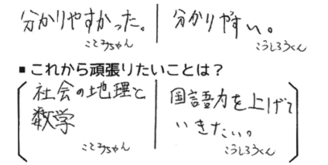 分かりやすかった。
こころちゃん
分かりやすい。
こうしろうくん
■これから頑張りたいことは？
社会の地理と
数学
こころちゃん
国語力を上げて
いきたい。
こうしろうくん